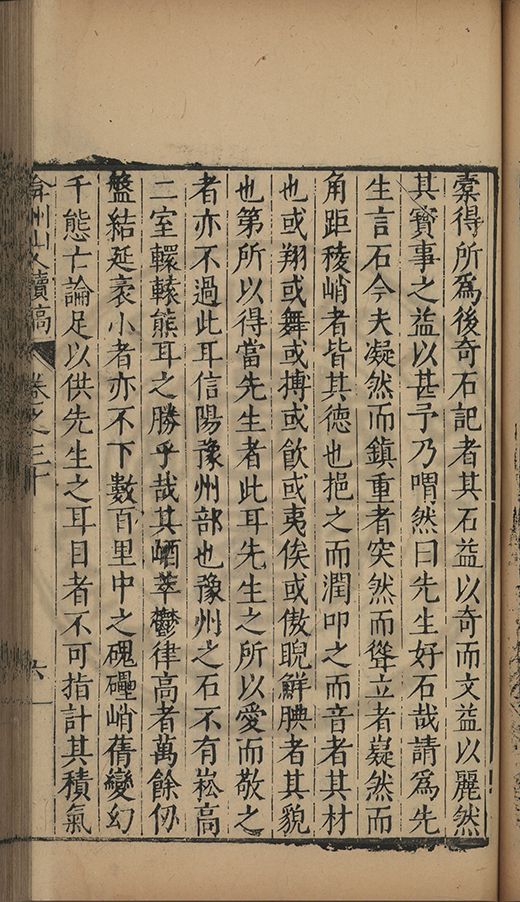 橐得所爲後奇石記者其石益以奇而文益以麗然
其寶事之益以甚予乃喟然曰先生好石哉請爲先
生言石今夫凝然而鎮重者突然而聳立者嶷然而
角距稜峭者皆其德也挹之而潤叩之而音者其材
也或翔或舞或搏或飲或夷俟或傲睨鮮腆者其貌
也第所以得當先生者此耳先生之所以愛而敬之
者亦不過此耳信陽豫州部也豫州之石不有崧高
二室轘轅熊耳之勝乎哉其崷萃鬱律高者萬餘仞
盤結延袤小者亦不下數百里中之磈礧峭蒨變幻
千態亡論足以供先生之耳目者不可指計其積氣
弇州山人續稿 卷之三十 六